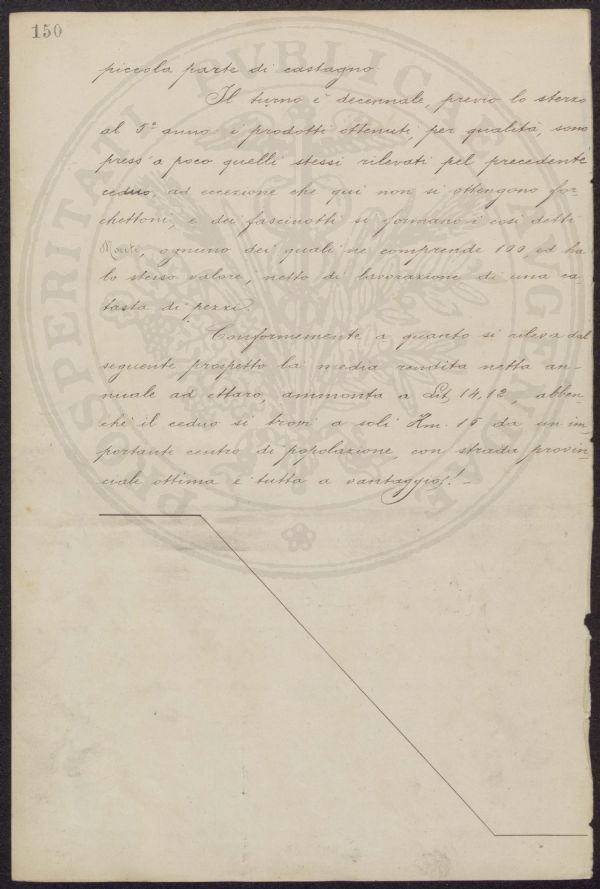 150
piccola parte di castagno.
Il turno è decennale, previo lo sterzo
al 5º anno i prodotti ottenuti, per qualità, sono
press'a poco quelli stessi rilevati pel precedente
ceduo, ad eccezione che qui non si ottengono for-
chettoni, e dei fascinotti si formano i così detti
ognuno dei quali ne comprende 100, ed ha
lo stesso valore, netto di lavorazione di una ca-
tasta di pezzi.
Conformemente a quanto si rileva dal
seguente prospetto la media rendita netta an-
nuale ad ettaro, ammonta a Lit 14,12, abben-
chè il ceduo si trovi a soli Km. 15 da un im-
portante centro di popolazione, con strada provin-
ciale ottima e tutta a vantaggio!.-
PROSPERITATI PVBLICAE AVGENDAE